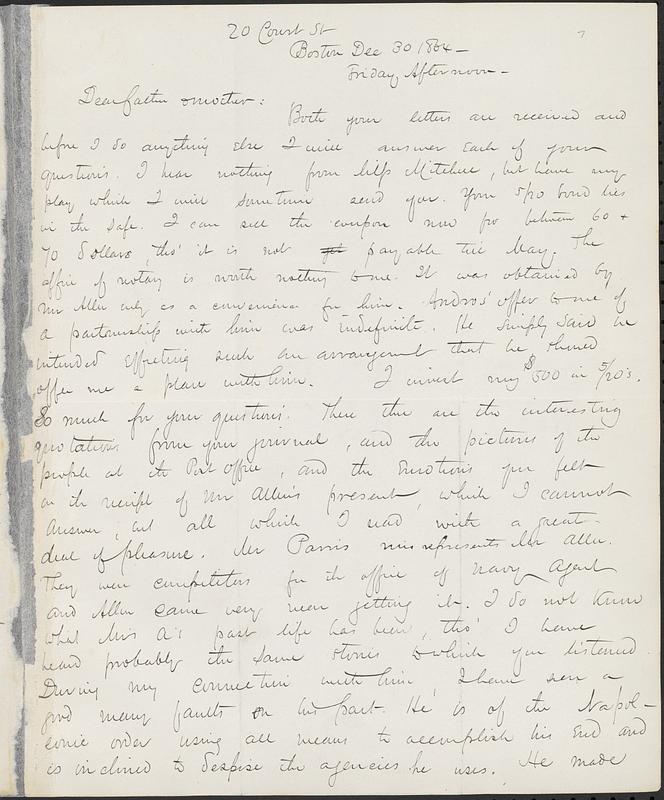 20 Court St
Boston Dec 30 1864 —
Friday Afternoon —
Dear father & mother:
Both your letters are received and
before I do anything else I will answer each of your
questions. I hear nothing from Mitchell, but have my
play which I will sometime send you. Your 5/20 bond lies
in the safe. I can sell the coupon now for between 60 &
70 dollars, tho' it is not payable till May. The
office of notary is worth nothing to me. It was obtained by
Mr Allen only as a convenience for him. Andros' offer to me of
a partnership with him was indefinite. He simply said he
intended effecting such an arrangement that he should
offer me a place with him. I invest my $500 in 5/20's.
So much for your questions. Then there are the interesting
quotations from your journal, and the pictures of the
people at the Post office, and the emotions you felt
on the receipt of Mr Allen's present, which I cannot
answer, but all which I read with a great
deal of pleasure. Mr Parris misrepresents Mr Allen.
They were competitors for the office of Navy Agent
and Allen came very near getting it. I do not know
what Mr A's past life has been, tho' I have
heard probably the same stories to which you listened.
During my connection with him I have seen a
good many faults on his part. He is of the Napol-
eonic order using all means to accomplish his end and
is inclined to despise the agencies he uses. He made